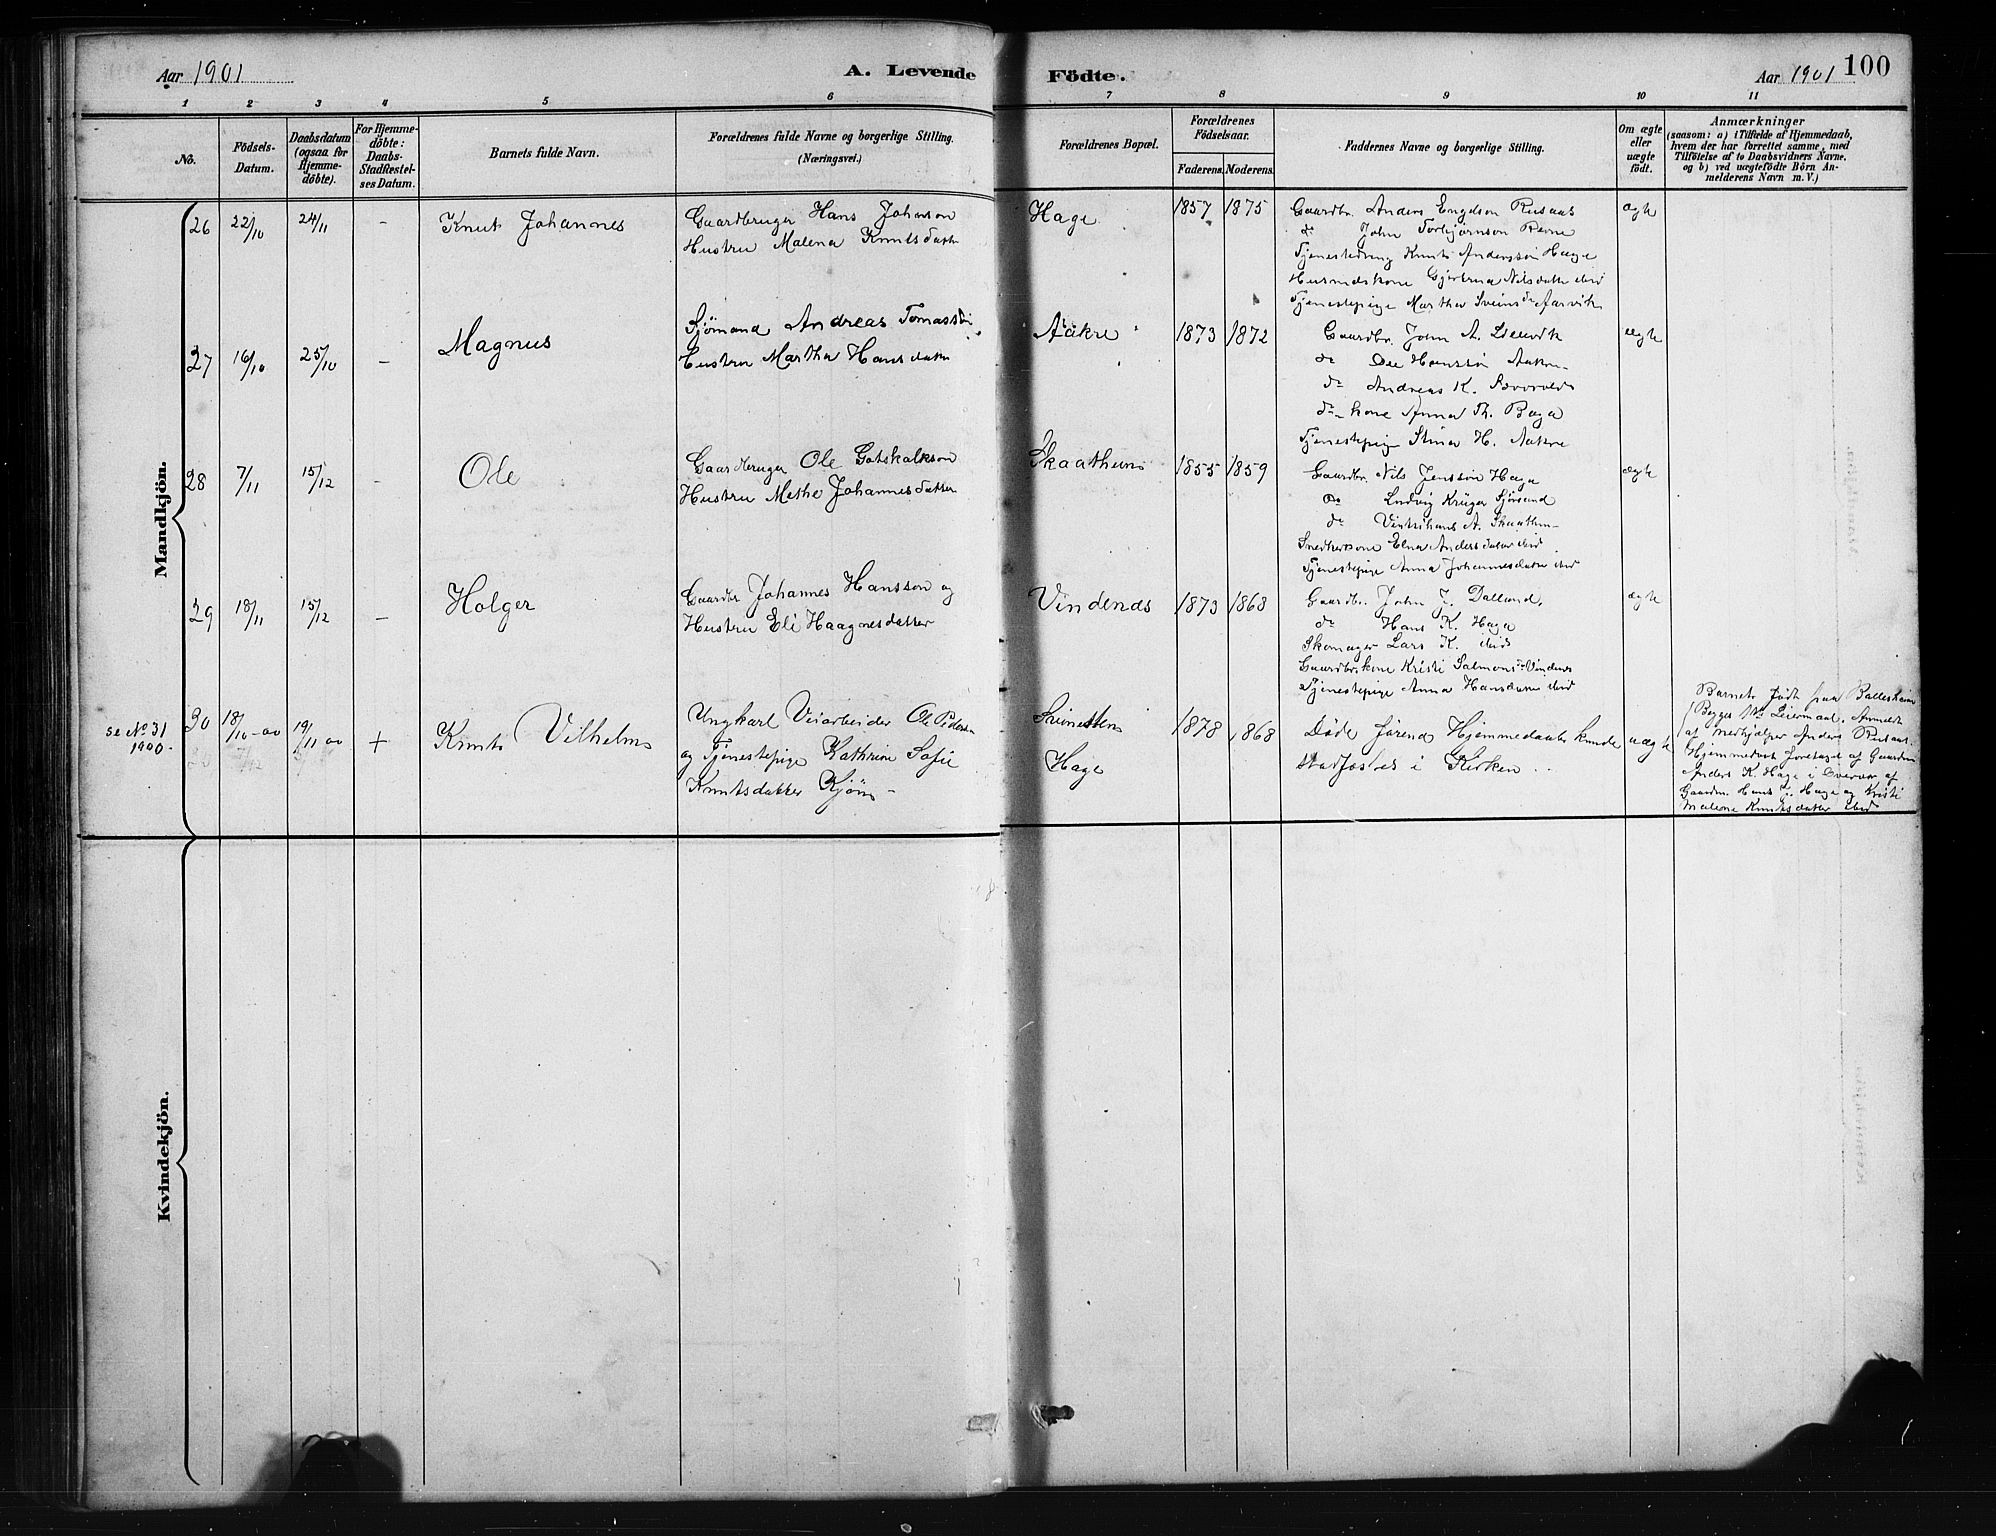 Aar 1901
A. Levende Födte.
Aar 1901 100
1 2 3 4 5 6 7 8 9 10 11
No.
Födsels-
Datum.
Daabsdatum
(ogsaa for
Hjemme-
döbte).
For Hjemme-
döbte:
Daabs-
Stadfæstel-
ses Datum.
Barnets fulde Navn.
Forældrenes fulde Navne og borgerlige Stilling.
(Næringsvei.)
Forældrenes Bopæl.
Forældrenes
Födselsaar.
Faderens. Moderens.
Faddernes Navne og borgerlige Stilling.
Om ægte
eller
uægte
födt.
Anmærkninger
(saasom: a) i Tilfælde af Hjemmedaab,
hvem der har forrettet samme, med
Tilföielse af to Daabsvidners Navne,
og b) ved uægtefödte Börn An-
melderens Navn m. V.)
Mandkjön.
26 22/10 24/11 - Knut Johannes
Gaardbruger Hans Johnson
Hustru Malena Knutsdatter
Hage 1857 1875
Gaardbr. Anders Engelson Rusaas
do John Torbjørnson Revne
Tjenestedreng Knut Andersson Hage
Husmdskone Gjertrua Nilsdatter ibid
Tjenestepige Martha Sveinsdr Aarvik
ægte
27 16/10 25/10 - Magnus
Sjømand Andreas Tomassøn
Hustru Martha Hansdatter
Aakre 1873 1872
Gaardbr. John A.
do Ole Hanssøn Aakre
do Andreas K.
do kone Anna Th. Haga
Tjenestepige Stina H. Aakre
ægte
28 7/11 15/12 - Ole
Gaardbruger Ole Gotskalkson
Hustru Methe Johannesdatter
Skaatheim 1855 1859
Gaardbr. Nils Jenssøn Haga
do Ludvig Krüger Sjøsand
do A. Skaathun
Elna Andersdatter ibid
Tjenestepige Anna Johannesdatter ibid
ægte
29 18/11 15/12 - Holger
Gaardbr Johannes Hansson og
Hustru Eli Haagnesdatter
Vindenes 1873 1868
Gaardbr. John J. Dalland,
do Hans K. Haga
Skomager Lars K. ibid
Gaardbr.kone Kristi Salmonsdr Vindenes
Tjenestepige Anna Hansdatter ibid
ægte
se No 31
1900.
30 18/10-00 19/11 00 + Knut Vilhelm
Ungkarl Veiarbeider Ole Pedersen
og Tjenestepige Kathrine Sofie
Knutsdatter Kjøn
Hage
1878 1868
Døde førend Hjemmedaaben kunde
stadfæstes i Kirken
uægte
Barnet født paa Balleshein
Begges 1ste Leiermaal. Anmeldt
af Medhjælper Anders Rusaas.
Hjemmedøbt foretaget af Gaardm.
Anders K. Hage i Overvær af
Gaardm. Hans J. Hage og Kristi
Malene Knutsdatter ibid
Kvindekjön.